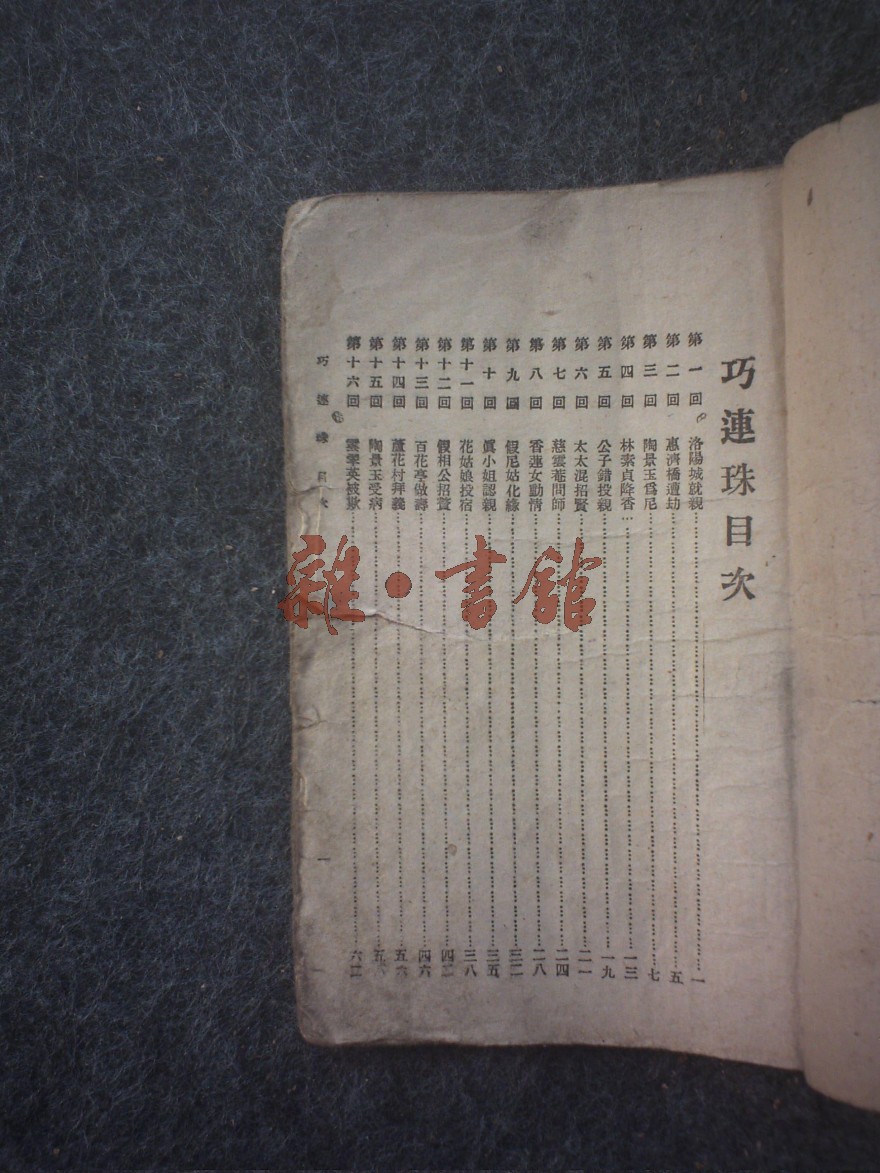 巧連珠目次
第一回 洛陽城就親 一
第二回 惠濟橋遭劫 五
第三回 陶景玉爲尼 七
第四回 林素貞降香 一三
第五回 公子錯投親 一九
第六回 太太混招賢 二一
第七回 慈雲菴問師 二四
第八回 香蓮女動情 二八
第九回 假尼姑化緣 三二
第十回 眞小姐認親 三五
第十一回 花姑娘投宿 三八
第十二回 假相公招贅 四二
第十三回 百花亭做壽 四六
第十四回 蘆花村拜義 五六
第十五回 陶景玉受病
第十六回 雲翠英被欺
巧連珠目次 一
雜·書館